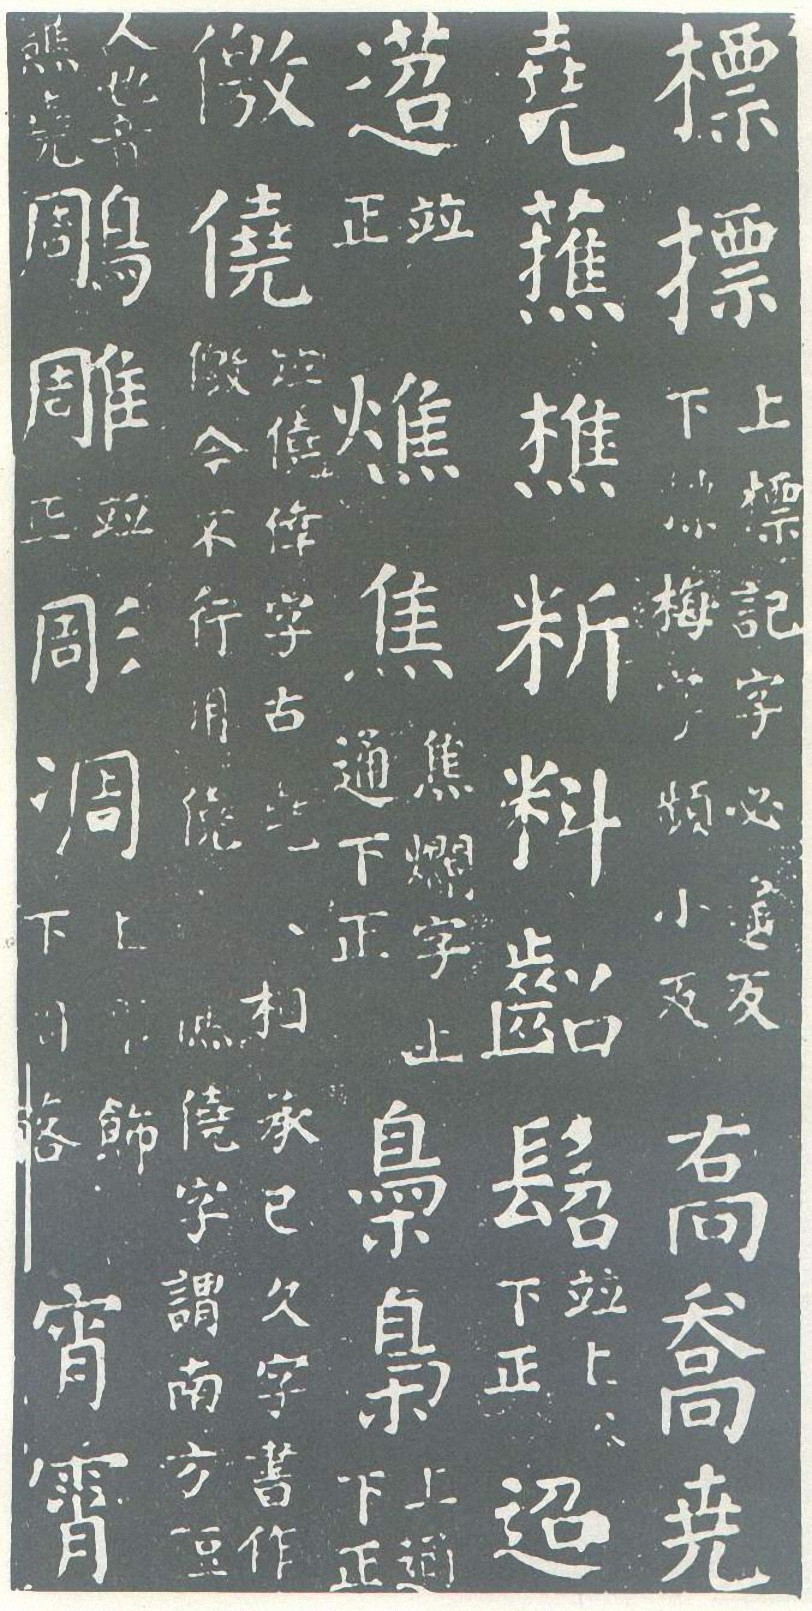 標摽上標記字必遙反下摽梅字頻小反喬尭
堯蕉樵料齠髫並上下正迢
並正燋焦焦爛字上通下正梟梟上通下正
儌僥並僥倖字古堯相承已久字書作儌今不行用僥僥字謂南方豆
人也音焦堯鵰雕並正彫凋上彫飾下凋落宵霄